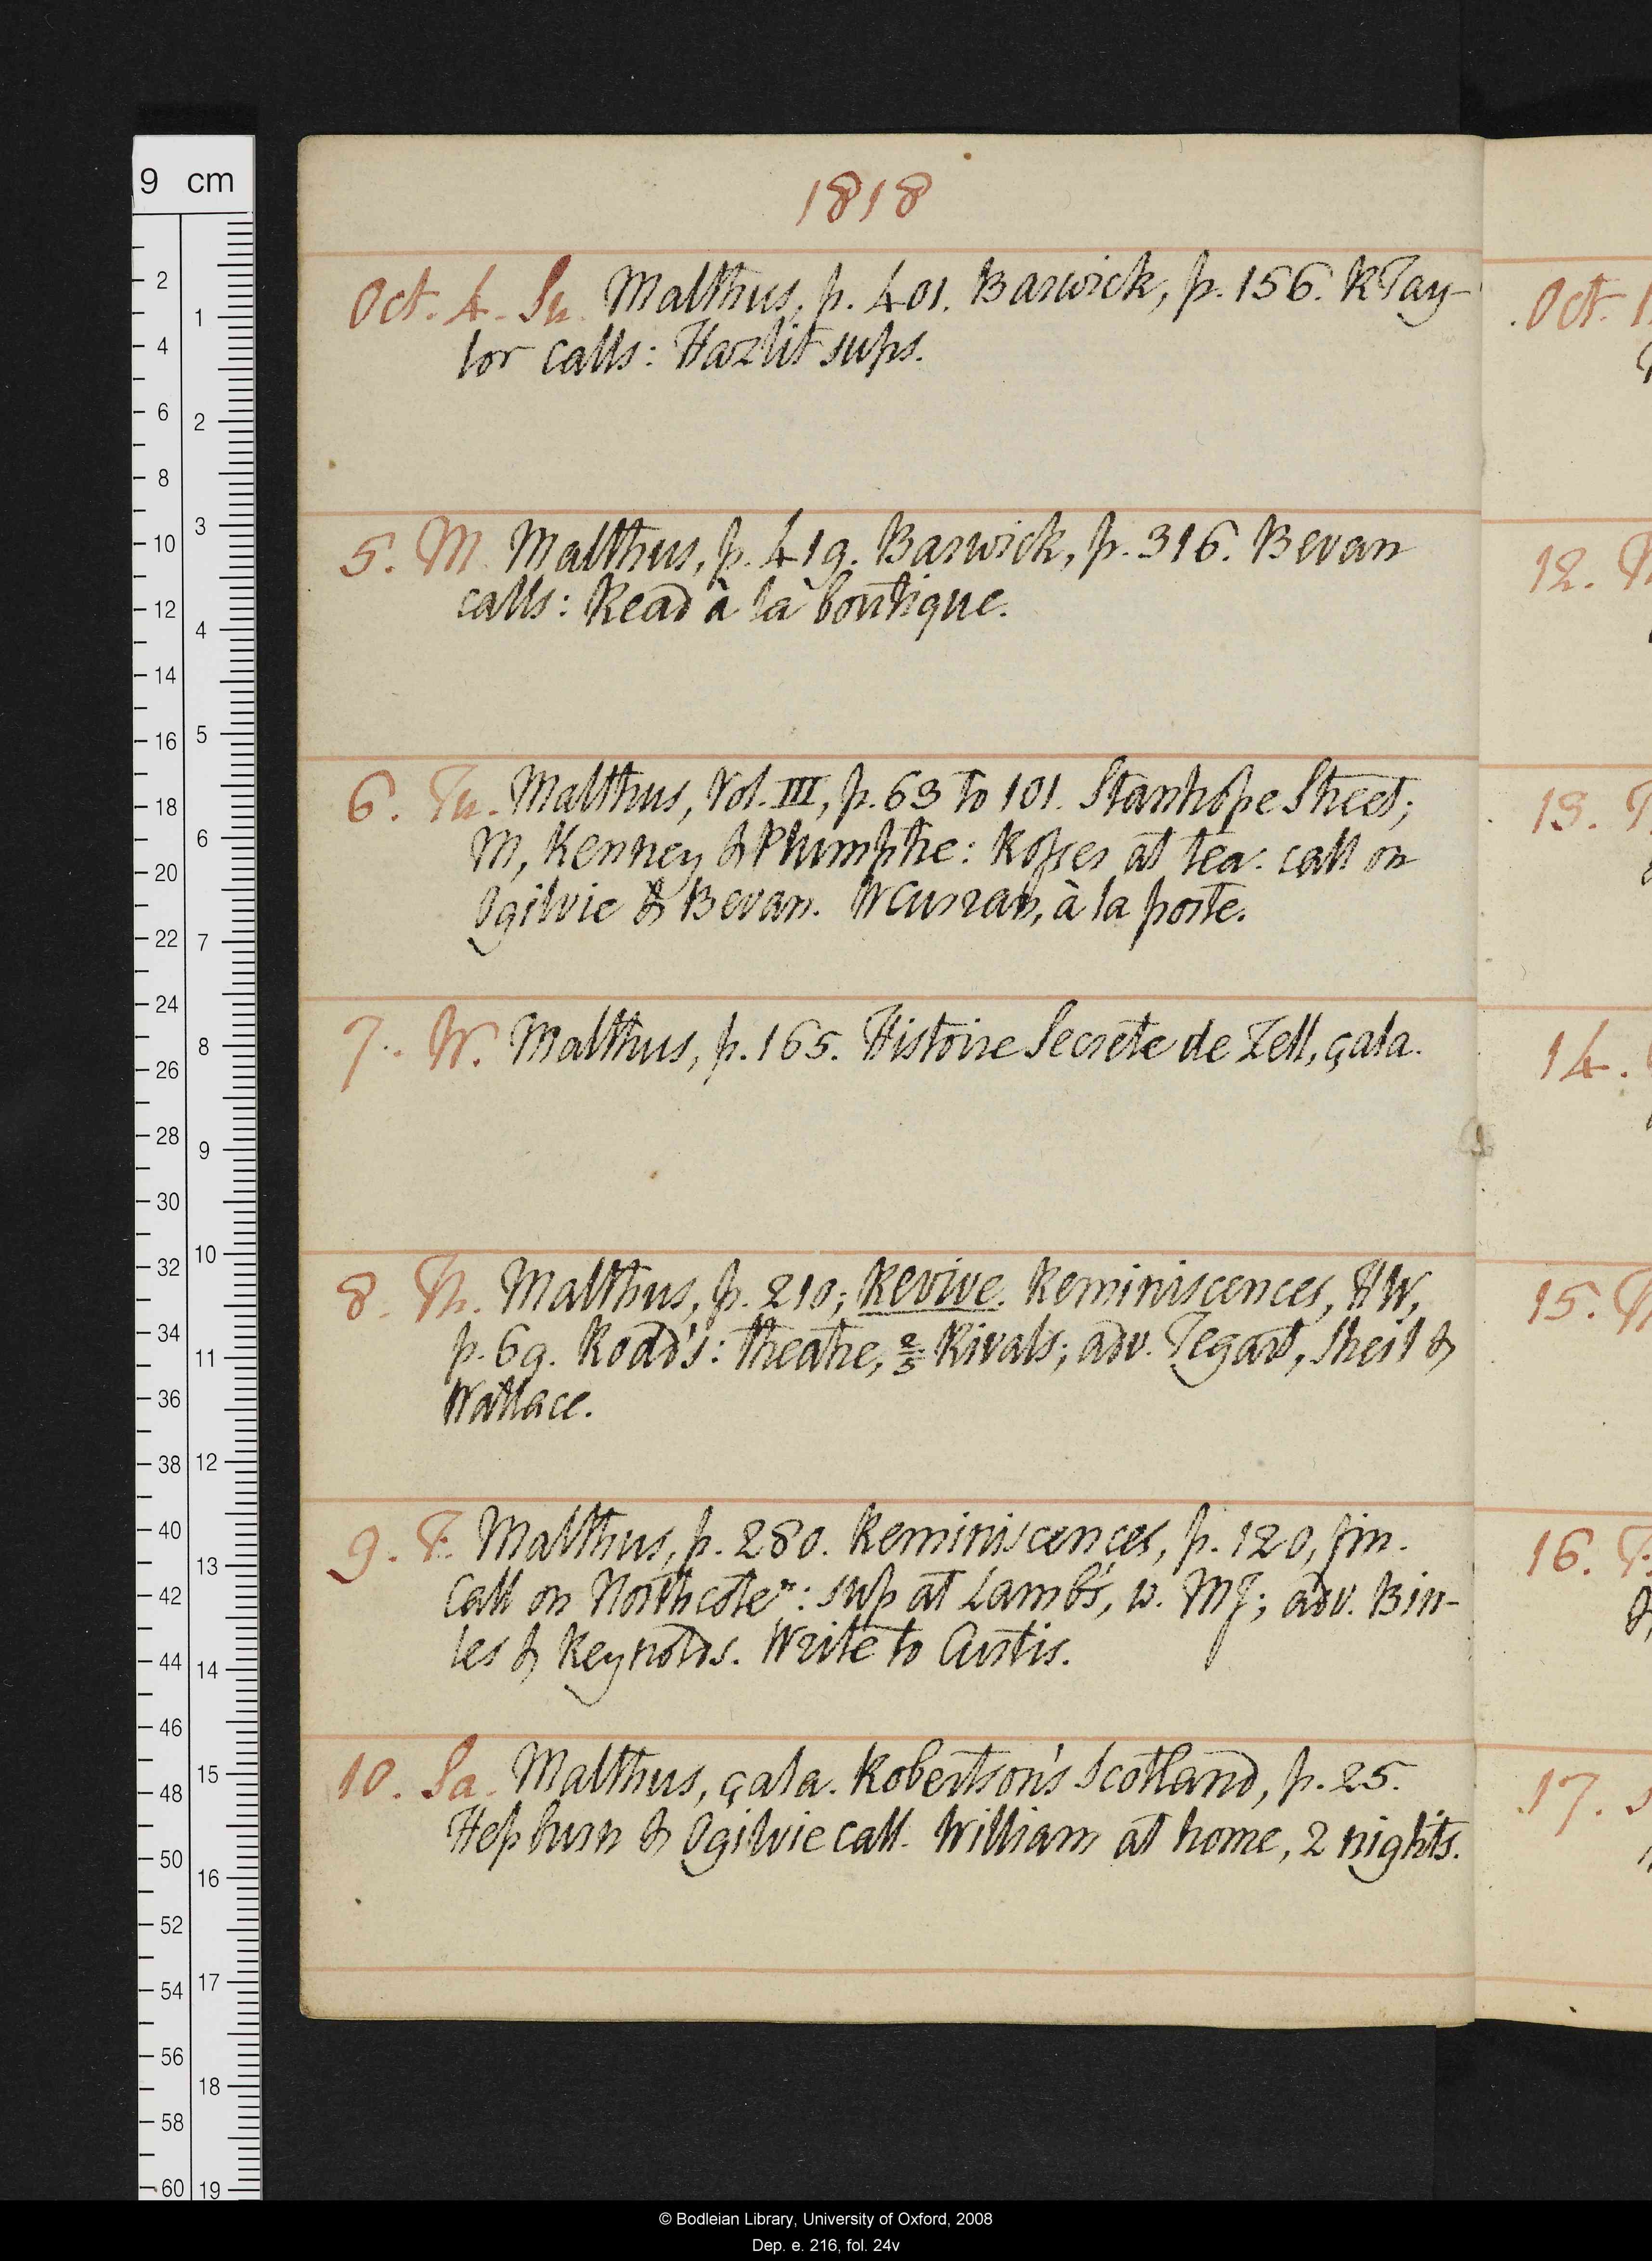 1818
Oct. 4. Su. Malthus, p. 401. Barwick, p. 156. R Tay-
lor calls: Hazlit sups.
5. M. Malthus, p. 419. Barwick, p. 316. Bevan
calls: Read à la boutique.
6. Tu. Malthus, Vol. III, p. 63 to 101. Stanhope Street;
M, Kenney & Plumptre: Rosser at tea. call on
Ogilvie & Bevan. W Curran, à la porte.
7. W. Malthus, p. 165. Histoire Secrete de Zell, çala.
8. Th. Malthus, p. 210; Revive. Reminiscences, HW,
p. 69. Rodd's: theatre, 2/5 Rivals; adv. Tegart, Sheil &
Wallace.
9. F. Malthus, p. 280. Reminiscences, p. 120, fin.
Call on Northcote n: sup at Lamb's, w. MJ; adv. Bin-
les & Reynolds. Write to Austis.
10. Sa. Malthus, çala. Robertson's Scotland, p. 25.
Hepburn & Ogilvie call. William at home, 2 nights.
Oct. 1
12.
13. T
14.
15.
16.
17. S
9 cm
2
4
6
8
10
12
14
16
18
20
22
24
26
28
30
32
34
36
38
40
42
44
46
48
50
52
54
56
58
60
1
2
3
4
5
6
7
8
9
10
11
12
13
14
15
16
17
18
19
© Bodleian Library, University of Oxford, 2008
Dep. e. 216, fol. 24v